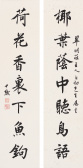 椰葉蔭中聽鳥語
荷花香裏下魚鉤